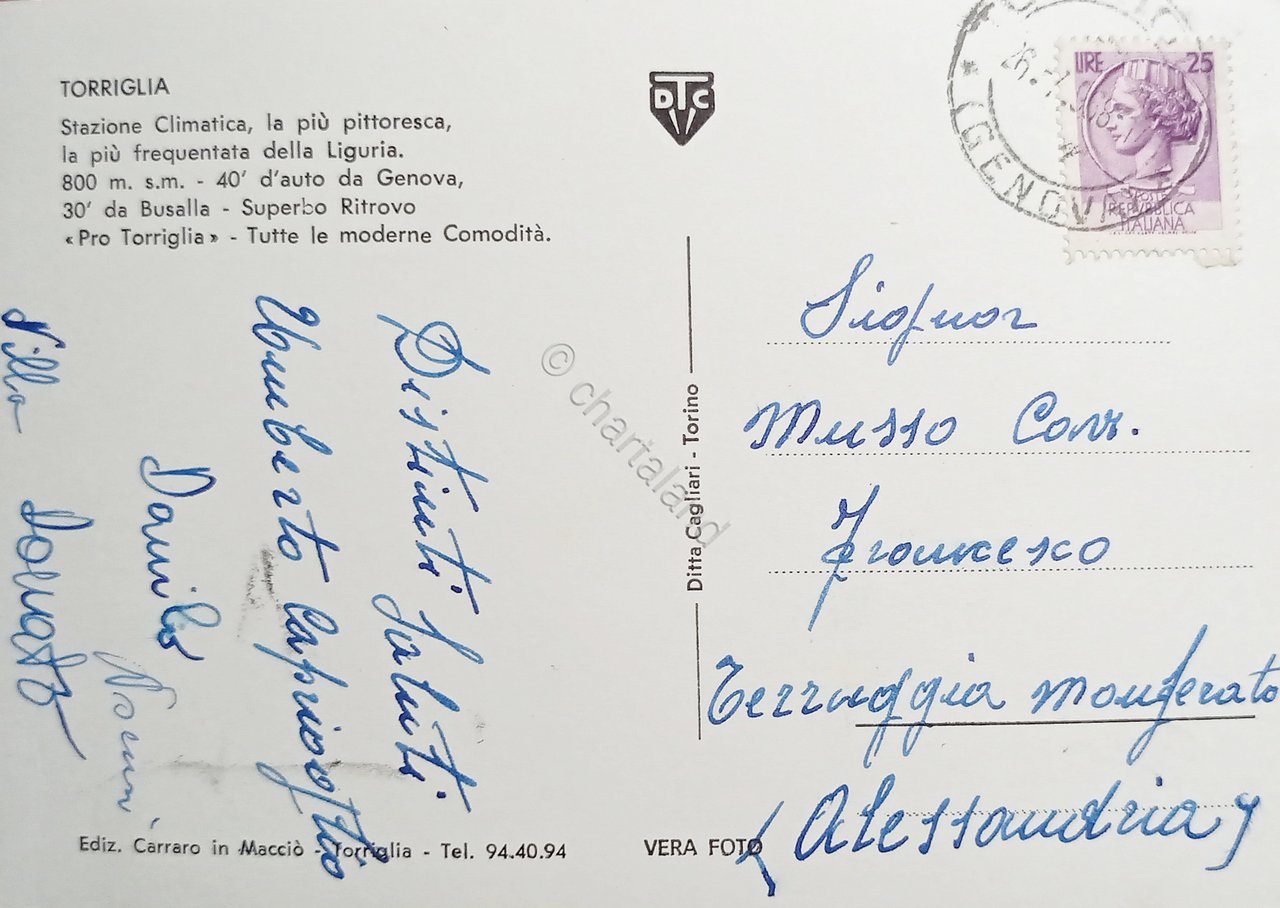 TORRIGLIA
Stazione Climatica, la più pittoresca,
la più frequentata della Liguria.
800 m. s.m. - 40' d'auto da Genova,
30' da Busalla - Superbo Ritrovo
«Pro Torriglia» - Tutte le moderne Comodità.
DTC
LIRE 25
POSTE
REPVBBLICA
ITALIANA
(GENOVA)
Distinti Saluti
Umberto Caprioglio
Danilo
Signor
Musso Cav.
Francesco
Terruggia Monferato
(Alessandria)
Ditta Cagliari - Torino
© chartaland
Ediz. Carraro in Macciò - Torriglia - Tel. 94.40.94
VERA FOTO